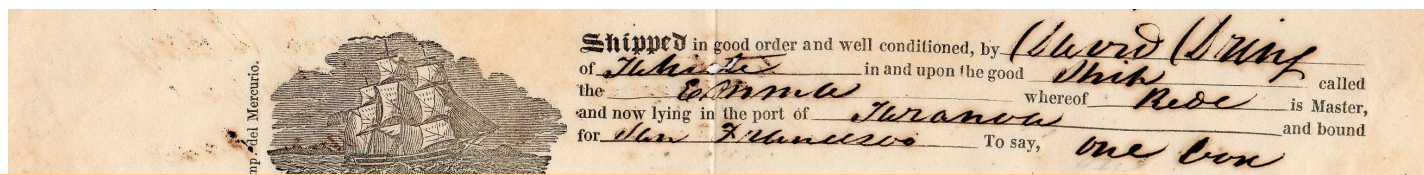 mp. del Mercurio.
Shipped in good order and well conditioned, by David Dring
of in and upon the good Ship called
the Emma whereof Rede is Master,
and now lying in the port of and bound
for San Francisco To say, one box